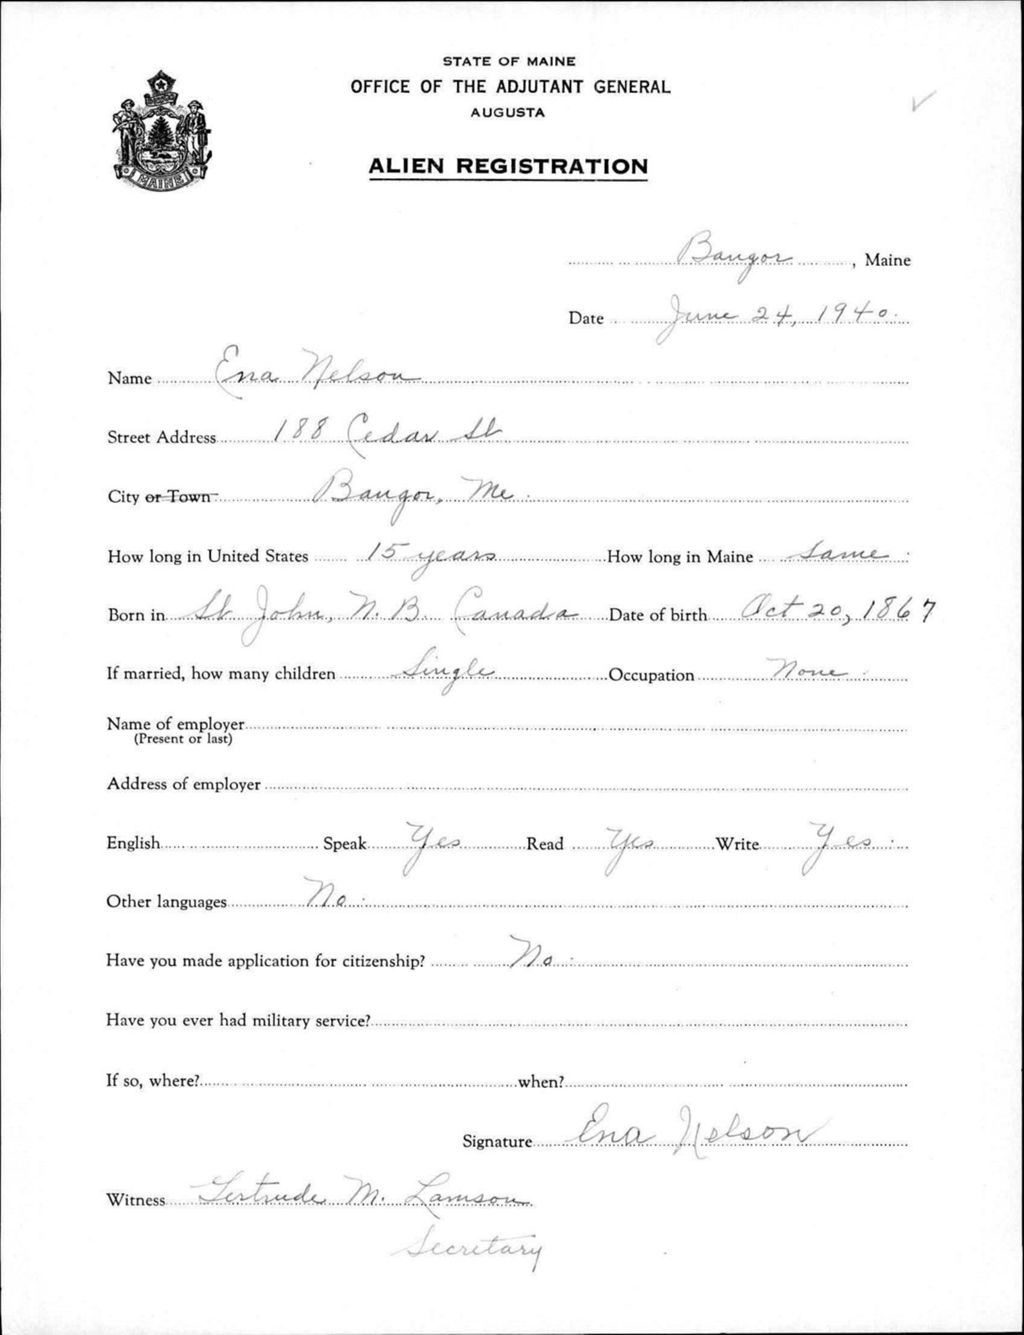 STATE OF MAINE
OFFICE OF THE ADJUTANT GENERAL
AUGUSTA
ALIEN REGISTRATION
MAINE
Bangor, Maine
Date June 24, 1940.
Name Ena Nelson
Street Address 188 Cedar St
City or Town Bangor, Me.
How long in United States 15 years How long in Maine Same
Born in St John, N. B. Canada Date of birth Oct 20, 1867
If married, how many children Single Occupation None
Name of employer
(Present or last)
Address of employer
English Speak Yes Read Yes Write Yes
Other languages No
Have you made application for citizenship? No
Have you ever had military service?
If so, where? when?
Signature Ena Nelson
Witness Gertrude M. Lamson
Secretary